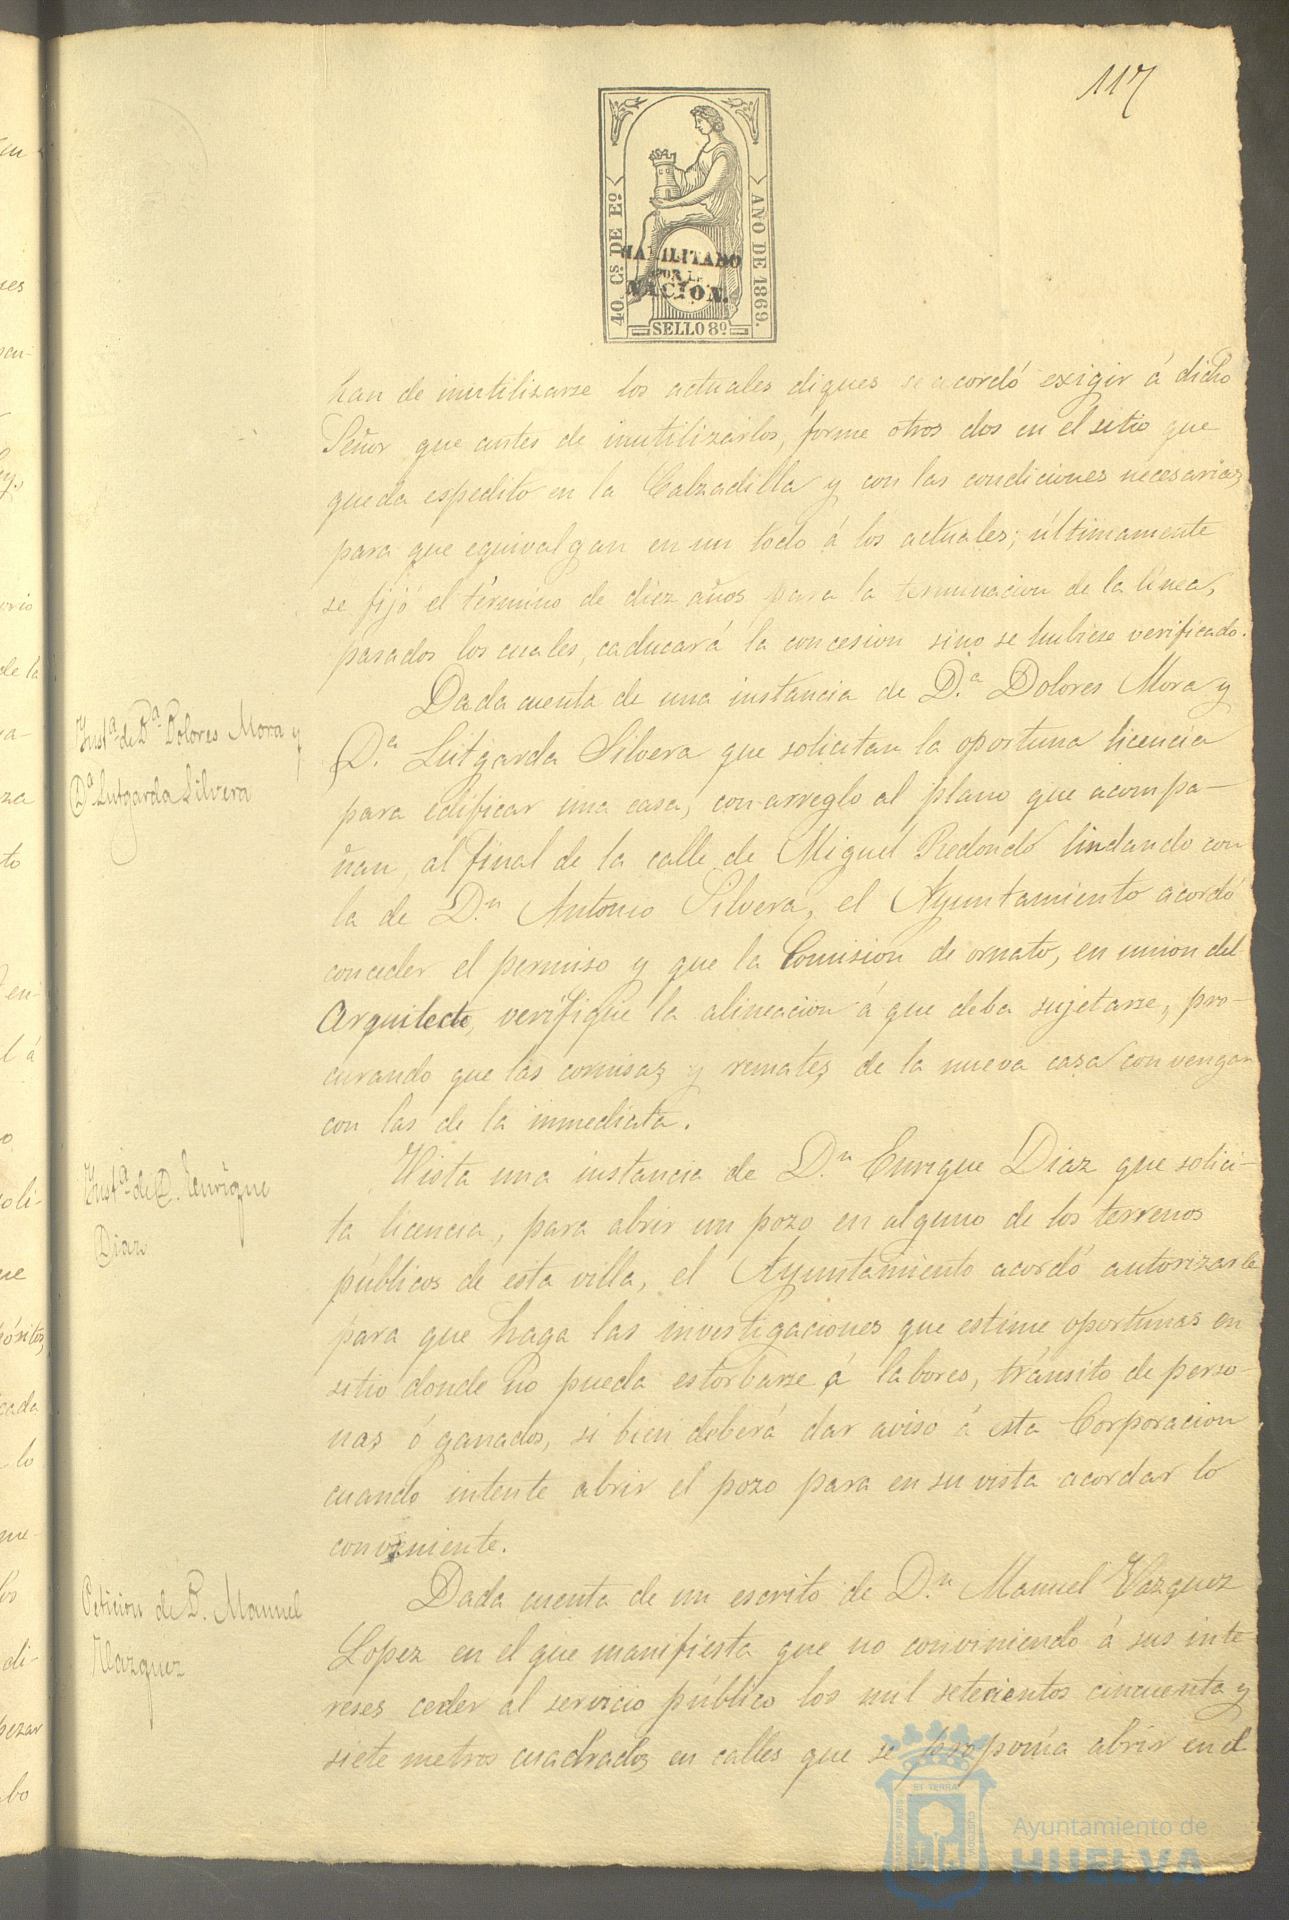 117
40. Cs. DE Eº.
AÑO DE 1869.
HABILITADO
POR LA
NACION.
SELLO 8º
han de inutilizarse los actuales diques se acordó exigir á dicho
Señor que antes de inutilizarlos, forme otros dos en el sitio que
queda espedito en la Calzadilla y con las condiciones necesarias
para que equivalgan en un todo á los actuales; últimamente
se fijó el término de diez años para la terminacion de la línea,
pasados los cuales, caducará la concesion sino se hubiese verificado.
Instª. de Dª. Dolores Mora y
Dª. Lutgarda Silvera
Dada cuenta de una instancia de D.ª Dolores Mora y
D.ª Lutgarda Silvera que solicitan la oportuna licencia
para edificar una casa, con arreglo al plano que acompa-
ñan, al final de la calle de Miguel Redondo lindando con
la de D.n Antonio Silvera, el Ayuntamiento acordó
conceder el permiso y que la Comision de ornato, en union del
Arquitecto, verifique la alineacion á que deba sujetarse, pro-
curando que las cornisas y remates de la nueva casa convengan
con las de la inmediata.
Instª. de D. Enrique
Diaz
Vista una instancia de D.n Enrique Diaz que solici-
ta licencia, para abrir un pozo en alguno de los terrenos
públicos de esta villa, el Ayuntamiento acordó autorizarle
para que haga las investigaciones que estime oportunas en
sitio donde no pueda estorbarse á labores, tránsito de perso-
nas ó ganados, si bien deberá dar aviso á esta Corporacion
cuando intente abrir el pozo para en su vista acordar lo
conveniente.
Peticion de D. Manuel
Vazquez
Dada cuenta de un escrito de D.n Manuel Vazquez
Lopez en el que manifiesta que no conviniendo á sus inte
reses ceder al servicio público los mil setecientos cincuenta y
siete metros cuadrados en calles que se proponía abrir en el
Ayuntamiento de
HUELVA